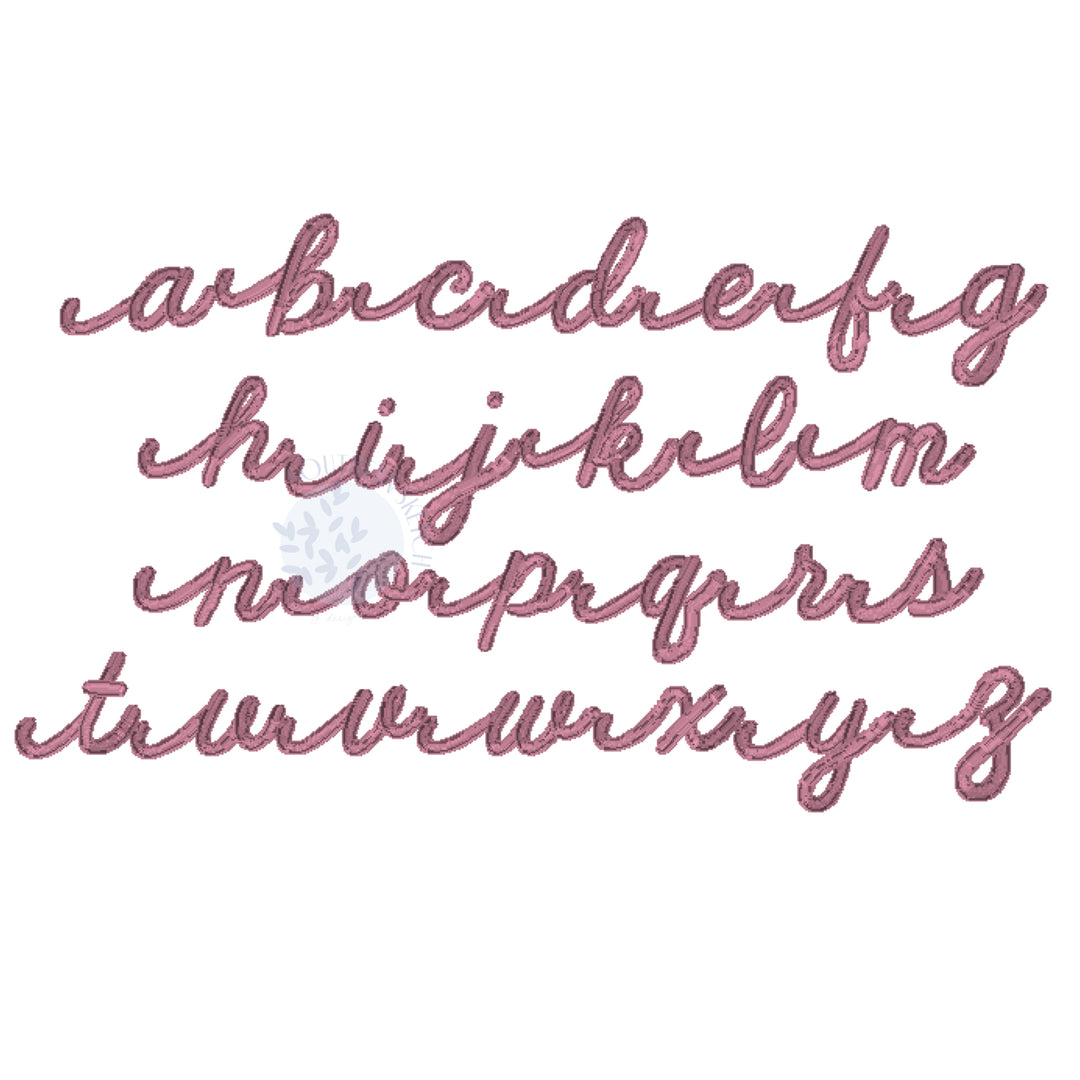 abcdefg
hijklm
nopqrs
tuvwxyz